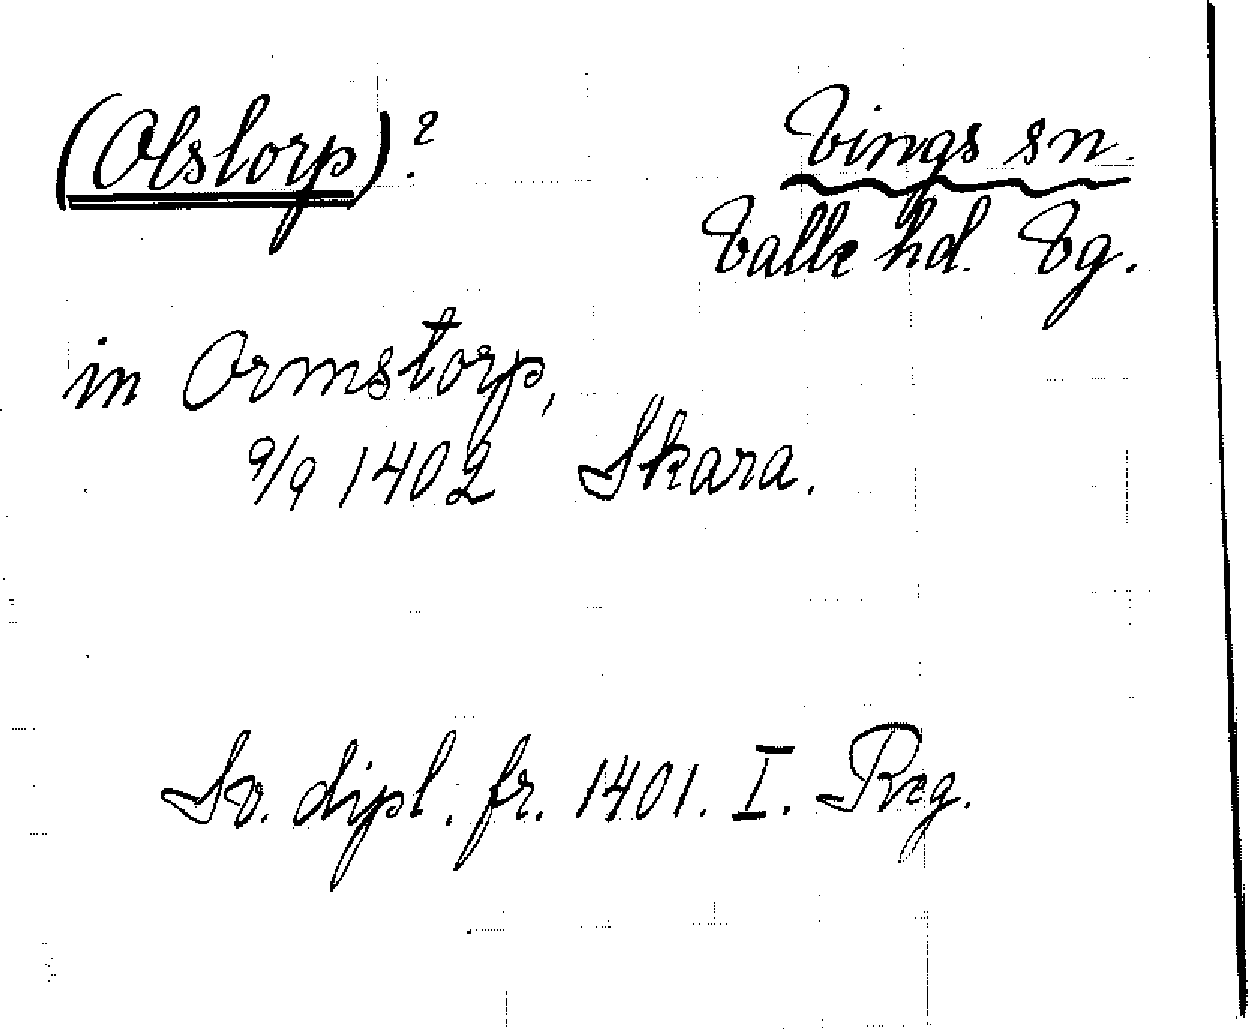 (Olstorp)?
Vings sn.
Valle hd. Vg.
in Ormstorp,
9/9 1402 Skara.
Sv. dipl. fr. 1401. I. Reg.